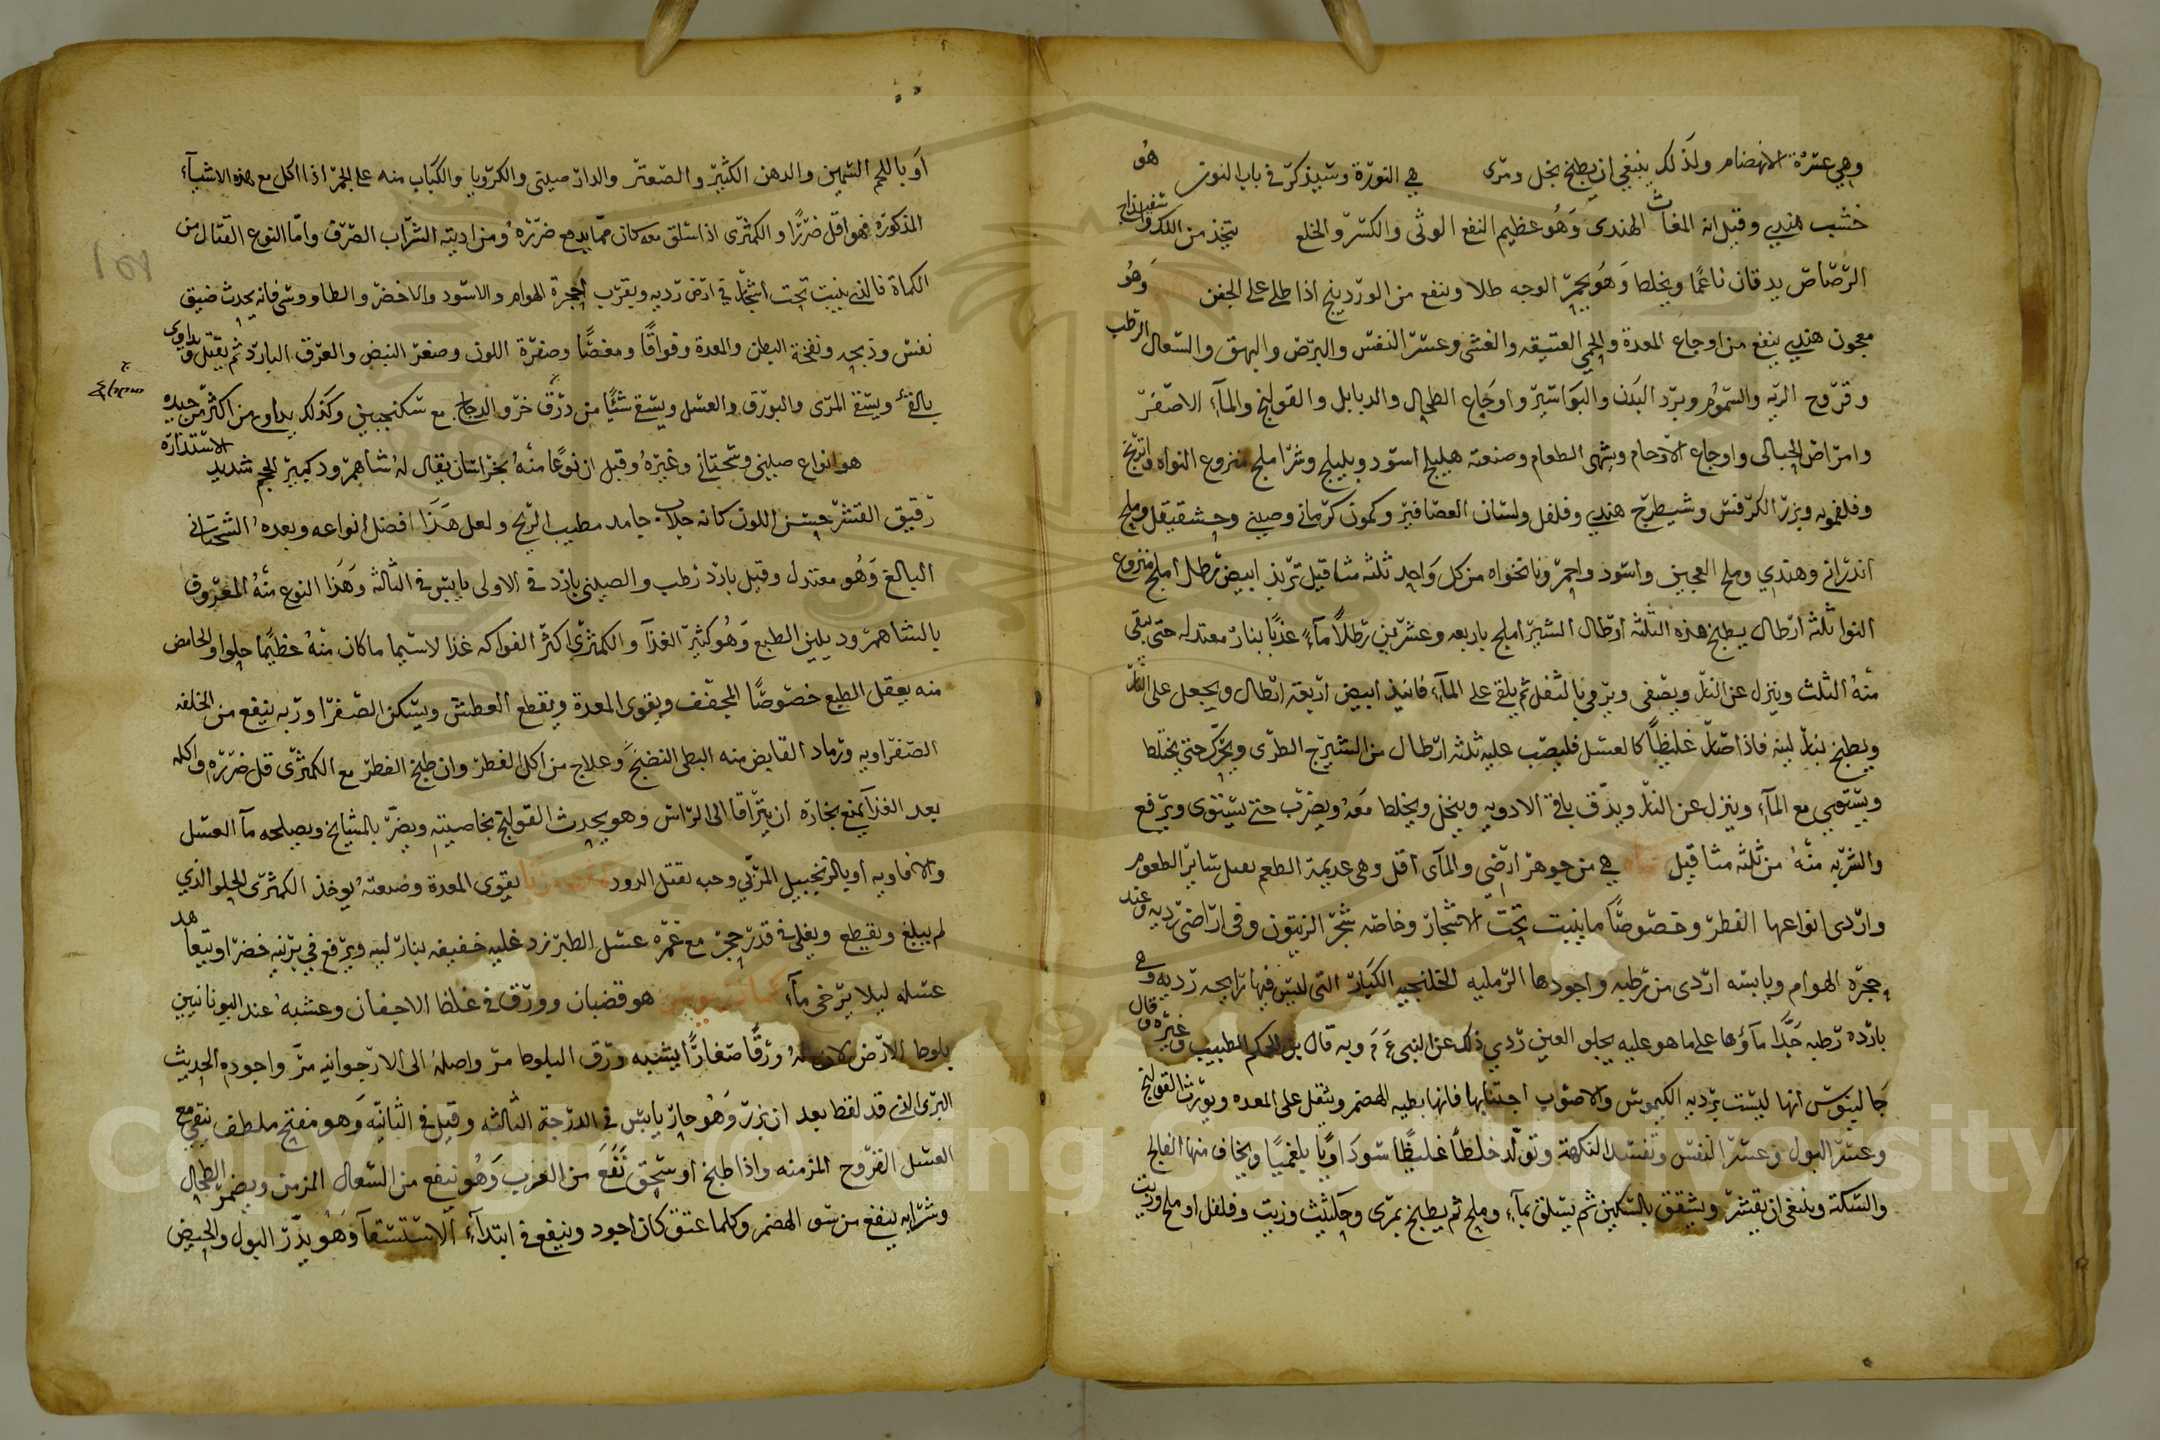 وهي عسرة الانهضام ولذلك ينبغي ان يطبخ بخل ومرى هي النورة وسيذكر في باب النون هو
خشب هندي وقيل انه المغاث الهندي وهو عظيم النفع الوثى والكسر والخلع يتخذ من اللك
الرصاص يدقان ناعما ويخلط وهو يحمر الوجه طلا وينفع من الوردينج اذا طلي على الجفن وهو
معجون هندي ينفع من اوجاع المعدة والحمى العتيقه والغشى وعسر النفس والبرص والبهق والسعال الرطب
وقروح الريه والسموم وبرد البدن والبواسير واوجاع الطحال والدبابل والقولنج والماء الاصفر
وامراض الحبالى واوجاع الارحام ويشهى الطعام وصنعته هليلج اسود وبليلج وشرا ملج منزوع النواه
وفلفمويه وبزر الكرفس وشيطرج هندي وفلفل ولسان العصافير وكمون كرماني وصيني
اندراني وهندي وملح العجين واسود واحمر ونانخواه من كل واحد ثلثه مثاقيل تربذ ابيض رطل املج منزوع
النوا ثلثه ارطال يطبخ هذه الثلثه ارطال الشير املج باربعه وعشرين رطلا ماء عذبا بنار معتدله حتى يبقى
منه الثلث وينزل عن النار ويصفى ويرمي بالثفل ثم يلقى على الماء فانيذ ابيض اربعه ارطال ويجعل على النار
ويطبخ بنار لينه فاذا صار غليظا كالعسل فليصب عليه ثلثه ارطال من الشيرج الطرى ويحرك حتى يختلط
ويستوي مع الماء وينزل عن النار ويدق باقي الادويه وينخل ويخلط معه ويضرب حتى يستوى ويرفع
والشربه منه من ثلثه مثاقيل هي من جوهر ارضي والمآى اقل وهي عديمة الطعم تقبل ساير الطعوم
واردى انواعها الفطر وخصوصا ما ينبت تحت الاشجار وخاصه شجر الزيتون وفي اراضي رديه وعند
حجرة الهوام ويابسه اردى من رطبه واجودها الرمليه الخلنجيه الكبار التي ليس فيها رايحه رديه وهي
بارده رطبه جدا ماؤها على ما هو عليه يجلو العين روي ذلك عن النبي وبه قال الحكيم الطبيب وغيره وقال
جالينوس انها ليست برديه الكيموس والاصوب اجتنابها فانها بطيه الهضم وتثقل على المعده وتورث القولنج
وعسر البول وعسر النفس وتفسد النكهة وتولد خلطا غليظا سوداويا بلغميا ويخاف منها الفالج
والسكتة وينبغي ان يقشر ويشقق بالسكين ثم يسلق بماء وملح ثم يطبخ بمرى وحلتيث وزيت وفلفل او ملح وزيت
او باللحم السمين والدهن الكثير والصعتر والدارصيني والكرويا والكباب منه على الجمر اذا اكل مع هذه الاشياء
المذكورة فهو اقل ضررا والكمثرى اذا سلق معه كان مما يدفع ضرره ومن ادويته الشراب الصرف واما النوع القتال من
الكماة فالذي ينبت تحت اشجار في ارض رديه وبقرب احجرة الهوام والاسود والاخضر والطاووسي فانه يحدث ضيق
نفس وذبحه ونفخة البطن والمعدة وفواقا ومغصا وصفرة اللون وصغر النبض والعرق البارد ثم يقتل ويداوى
بالقي ويسقى المرى والبورق والعسل ويسقى شيا من ذرق خرو الدجاج مع سكنجبين وكذلك يداوى من اكثر من جيده
هو انواع صيني وسجستاني وغيره وقيل ان نوعا منه بخراسان يقال له شاهمرود كبير الحجم شديد الاستدارة
رقيق القشر حسن اللون كانه جلاب جامد مطيب الريح ولعل هذا افضل انواعه وبعده السجستاني
البالغ وهو معتدل وقيل بارد رطب والصيني بارد في الاولى يابس في الثالثه وهذا النوع منه المعروف
بالشاهمرود يلين الطبع وهو كثير الغذآ والكمثرى اكثر الفواكه غذا لاسيما ما كان منه عظيما حلوا والحامض
منه يعقل الطبع خصوصا المجفف ويقوى المعدة ويقطع العطش ويسكن الصفرا وربه ينفع من الخلفه
الصفراويه ورماد القابض منه البطى النضج وعلاج من اكل الفطر وان طبخ الفطر مع الكمثرى قل ضرره واكله
بعد الغذآ يمنع بخاره ان يتراقا الى الراس وهو يحدث القولنج بخاصيته ويضر بالمشايخ ويصلحه مآ العسل
والافاويه او بالزنجبيل المربى وحبه يقتل الدود يقوى المعدة وصنعته يوخذ الكمثرى الحلو الذي
لم يبلغ ويقطع ويغلى في قدر حجر مع غمره عسل الطبرزد غليه خفيفه بنار لينه ويرفع في برنيه خضرا ويتعاهد
عسله ليلا يرخي ماء كمادريوس هو قضبان وورق في غلظ الاجفان وعشبه عند اليونانيين
بلوط الارض لان له ورقا صغارا يشبه ورق البلوط مر واصله الى الارجوانيه مر واجوده الحديث
البري الذي قد لقط بعد ان بزر وهو حار يابس في الدرجة الثالثه وقيل في الثانيه وهو مفتح ملطف ينقي مع
العسل القروح المزمنه واذا طبخ او سحق نفع من الغرب وهو ينفع من السعال المزمن ويضمر الطحال
وشرابه ينفع من سو الهضم وكلما عتق كان اجود وينفع في ابتدآء الاستسقآ وهو يدر البول والحيض